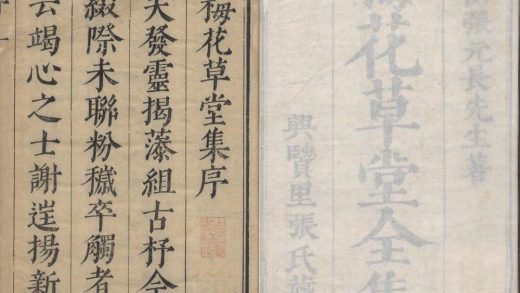 張元長先生著
梅花草堂全集
興賢里張氏藏
梅花草堂集序
發靈揭藻組古杼今
綴際未聯粉穢卒觸者
云竭心之士謝揚新